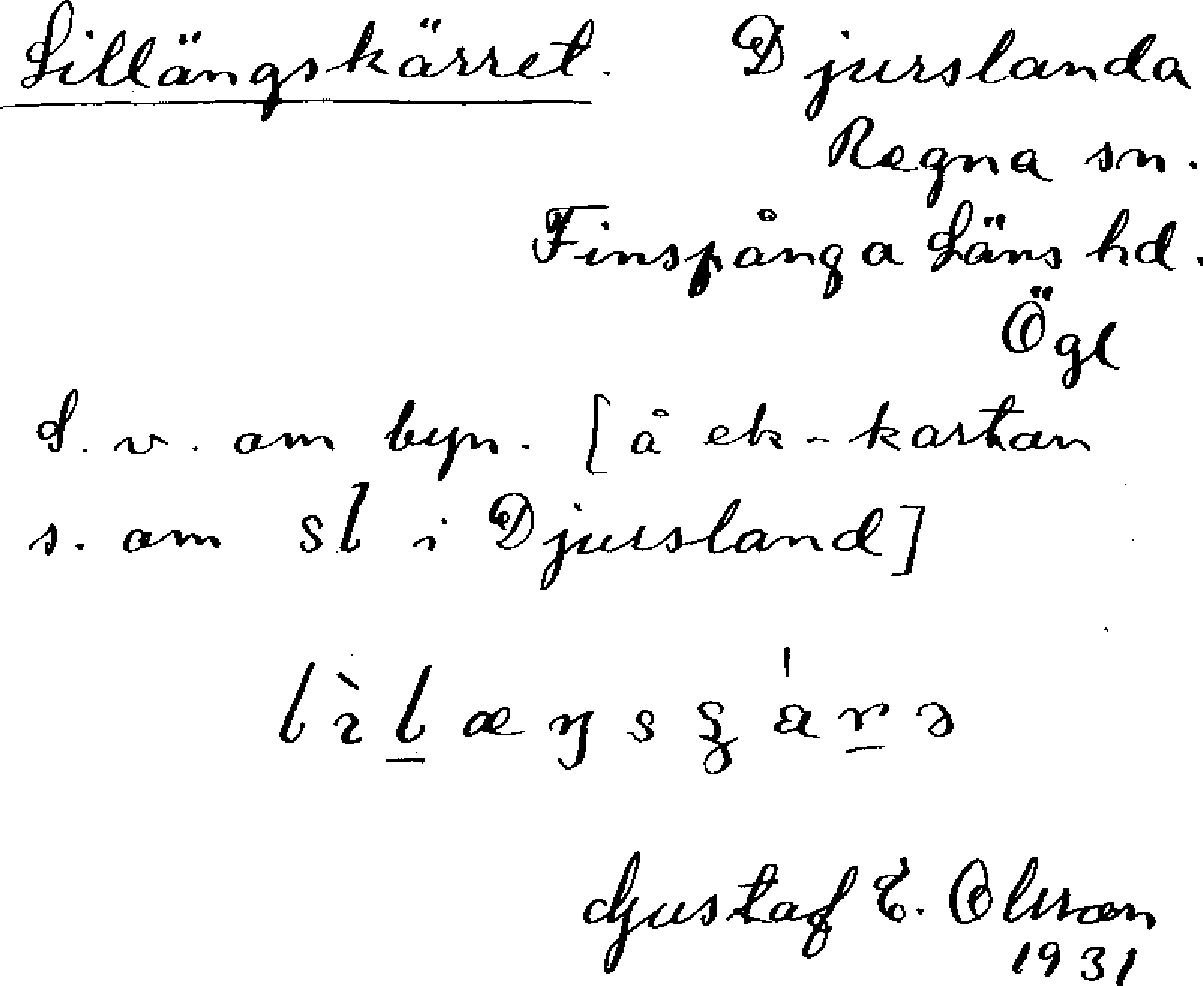 Lillängskärret. Djurslanda
Regna sn.
Finspånga Läns hd.
Ögl
S. v. om byn. [å ek-kartan
s. om sl i Djursland]
Gustaf E. Olsson
1931